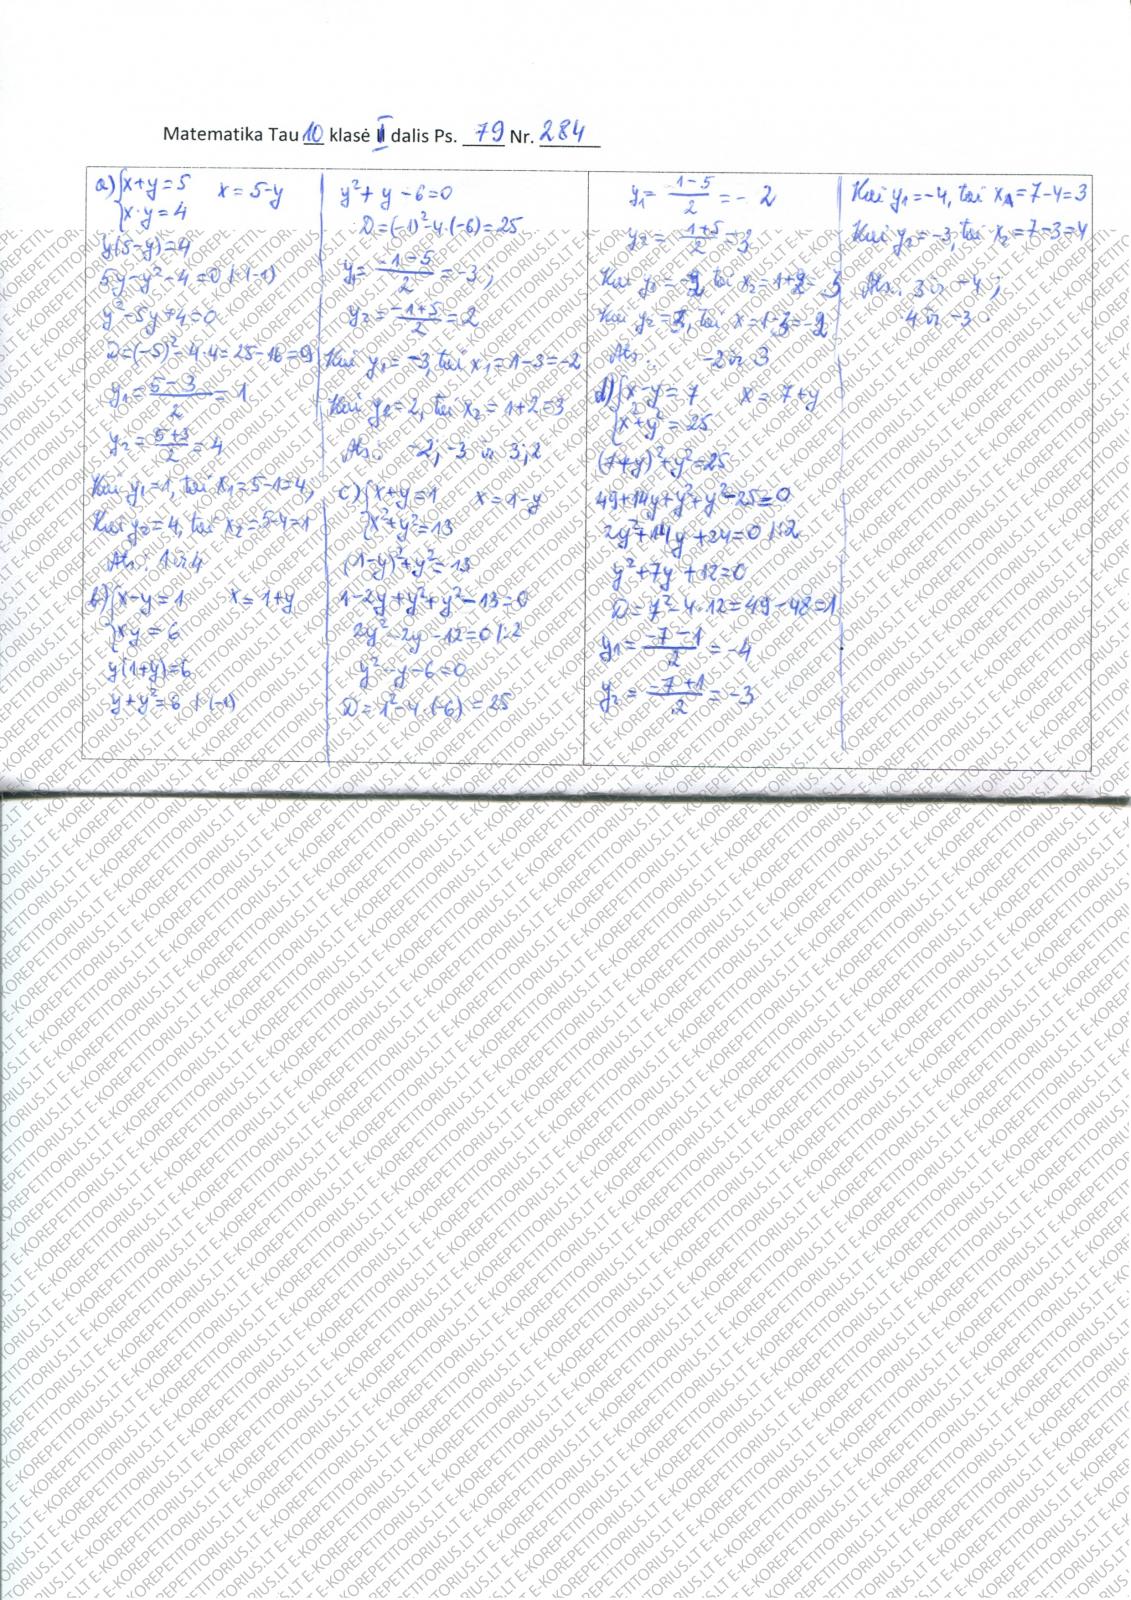 Matematika Tau 10 klasė II dalis Ps. 79 Nr. 284
a) { x+y=5   x=5-y
x·y=4
y(5-y)=4
5y-y²-4=0 |·(-1)
y²-5y+4=0
D=(-5)²-4·4=25-16=9
y₁=(5-3)/2=1
y₂=(5+3)/2=4
Kai y₁=1, tai x₁=5-1=4,
Kai y₂=4, tai x₂=5-4=1
Ats.: 1 ir 4
b) { x-y=1   x=1+y
xy=6
y(1+y)=6
y+y²=6 |·(-1)
y²+y-6=0
D=(-1)²-4·(-6)=25
y₁=(-1-5)/2=-3;
y₂=(-1+5)/2=2
Kai y₁=-3, tai x₁=1-3=-2
Kai y₂=2, tai x₂=1+2=3
Ats.: -2; -3 ir 3; 2
c) { x+y=1   x=1-y
x²+y²=13
(1-y)²+y²=13
1-2y+y²+y²-13=0
2y²-2y-12=0 |:2
y²-y-6=0
D=1²-4·(-6)=25
y₁=(1-5)/2=-2
y₂=(1+5)/2=3
Kai y₁=-2, tai x₂=1+2=3
Kai y₂=3, tai x=1-3=-2
Ats.: -2 ir 3
d) { x-y=7   x=7+y
x²+y²=25
(7+y)²+y²=25
49+14y+y²+y²-25=0
2y²+14y+24=0 |:2
y²+7y+12=0
D=7²-4·12=49-48=1
y₁=(-7-1)/2=-4
y₂=(-7+1)/2=-3
Kai y₁=-4, tai x₁=7-4=3
Kai y₂=-3, tai x₂=7-3=4
Ats.: 3 ir -4;
4 ir -3.
E-KOREPETITORIUS.LT